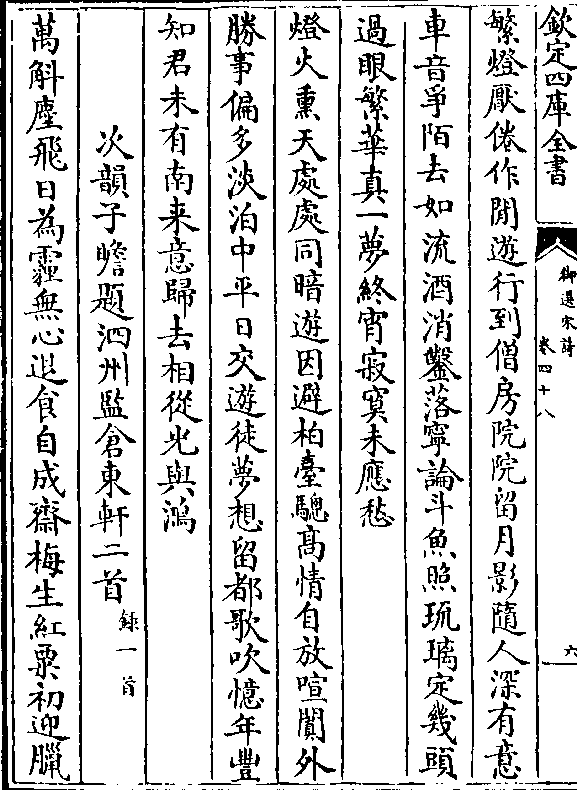 欽定四庫全書
御選宋詩
卷四十八
六
繁燈厭倦作閒遊行到僧房院院留月影隨人深有意
車音爭陌去如流酒消鑿落寧論斗魚照琉璃定幾頭
過眼繁華真一夢終宵寂寞未應愁
燈火熏天處處同暗遊因避柏臺驄高情自放喧闐外
勝事偏多淡泊中平日交遊徒夢想留都歌吹憶年豐
知君未有南来意歸去相從北與鴻
次韻子瞻題泗州監倉東軒二首錄一首
萬斛塵飛日為霾無心退食自成齋梅生紅粟初迎臘